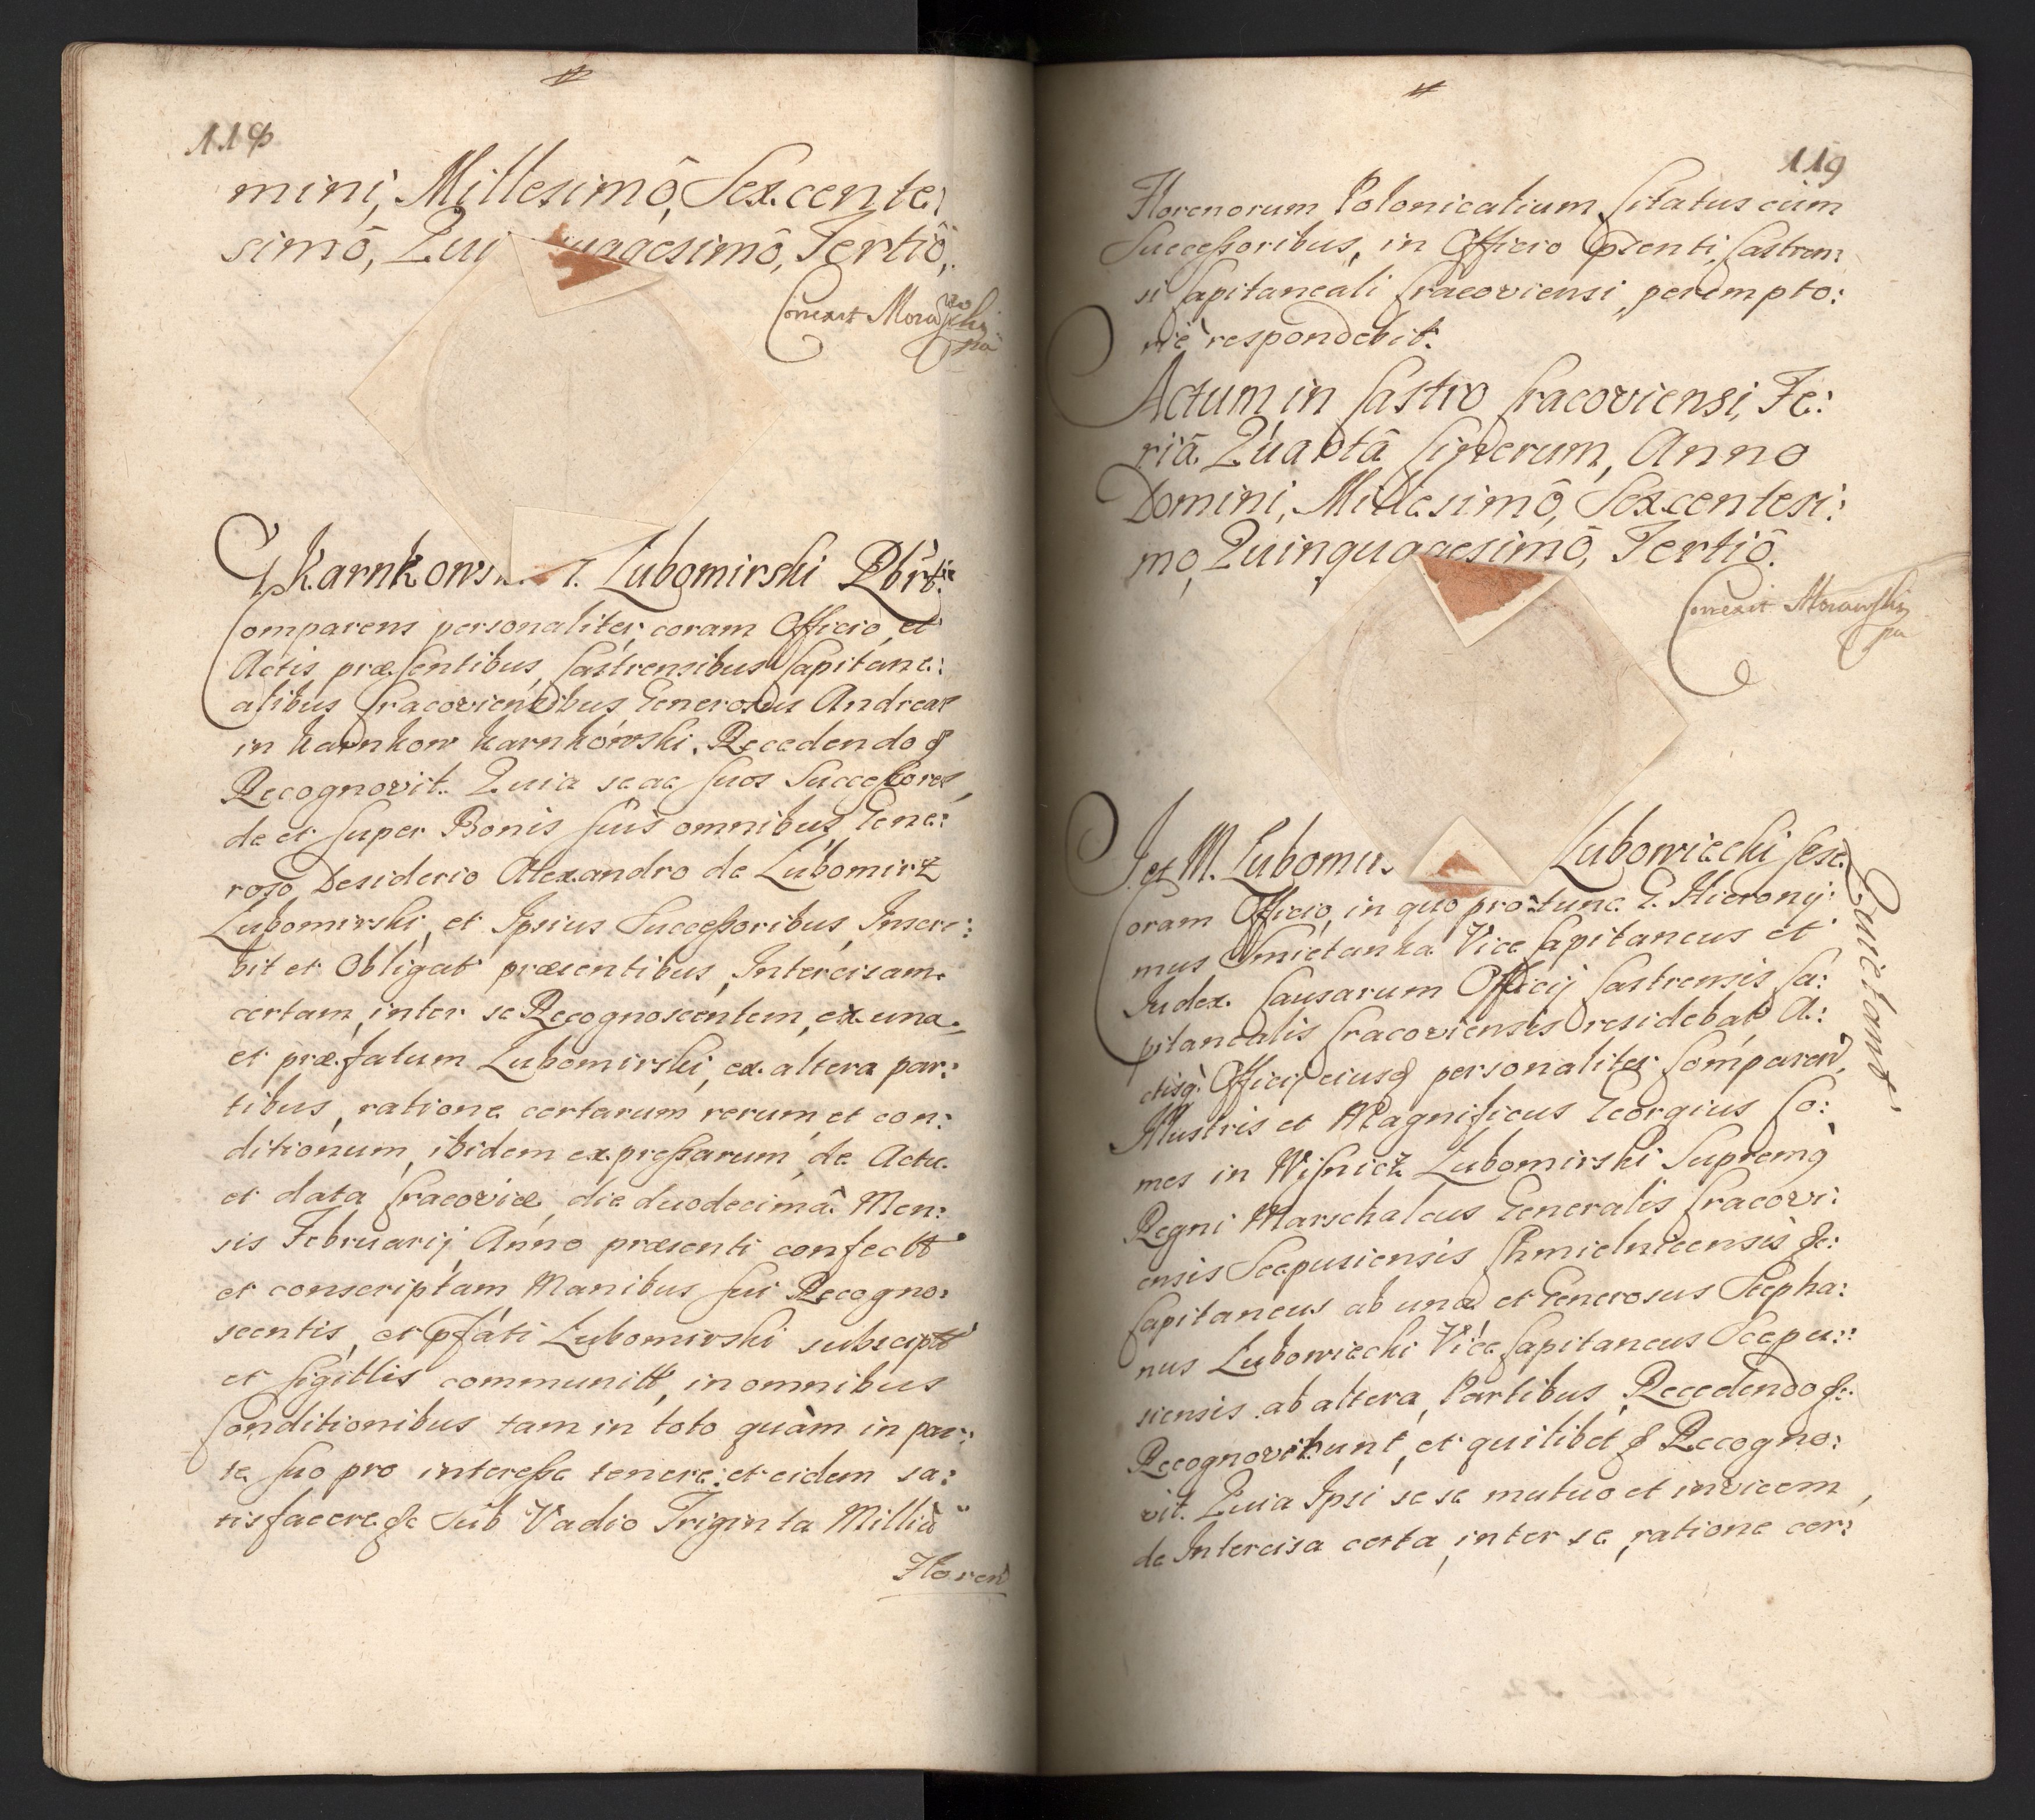 118
mini, Millesimô, Sexcente:
simô, Qui quagesimô, Tertiô,
Correxit Morawski
mpa
G. Karnkows. G. Lubomirski Obrtr.
Comparens personaliter, coram Officio, et
Actis præsentibus, Castrensibus Capitane:
alibus Cracoviensibus Generosus Andreas
in Karnkow Karnkowski. Recedendo &
Recognovit. Quia se ac suos Successores,
de et super Bonis suis omnibus, Gene:
roso Desiderio Alexandro de Lubomirz
Lubomirski, et Ipsius Successoribus, Inscri:
bit et Obligat præsentibus, Intercisam
certam, inter se Recognoscentem, ex una
et præfatum Lubomirski, ex altera par:
tibus, ratione certarum rerum et con:
ditionum, ibidem expressarum, de Actu
et data Cracoviæ, die duodecimâ Men:
sis Februarij Anno præsenti confectt
et conscriptam Manibus sui Recogno:
scentis, et pfati Lubomirski subscriptt
et sigillis communitt, in omnibus
Conditionibus tam in toto quàm in par:
te suo pro interesse tenere: et eidem sa:
tisfacere &c Sub Vadio Triginta Milliû
Floren
119
Florenorum Polonicalium Citatus cum
Successoribus, in Officio pssenti, Castren:
si Capitaneali Cracoviensi, perempto:
riè respondebit.
Actum in Castro Cracoviensi, Fe:
riâ Quartâ Cinerum, Anno
Domini, Millesimô, Sexcentesi:
mo, Quinquagesimô, Tertiô.
Correxit Morawski
mpa
I. et M. Lubomir. Lubowiecki sese
Quietant
Coram Officio, in quo pro tunc G. Hierony:
mus Smietanka Vice Capitaneus et
Iudex Causarum Officij Castrensis Ca:
pitanealis Cracoviensis residebat A:
ctisq Officij eiusd personaliter Comparen,
Illustris et Magnificus Georgius Co:
mes in Wisnicz Lubomirski Supremq
Regni Marschalcus Generalis Cracovi:
ensis Scepusiensis Chmielnicensis &c:
Capitaneus ab una et Generosus Stepha:
nus Lubowiecki Vice Capitaneus Scepu:
siensis ab altera, Partibus, Recedendo &c.
Recognoverunt, et quilibet & Recogno:
vit. Quia Ipsi se se mutuo et invicem,
de Intercisa certa, inter se, ratione cer: